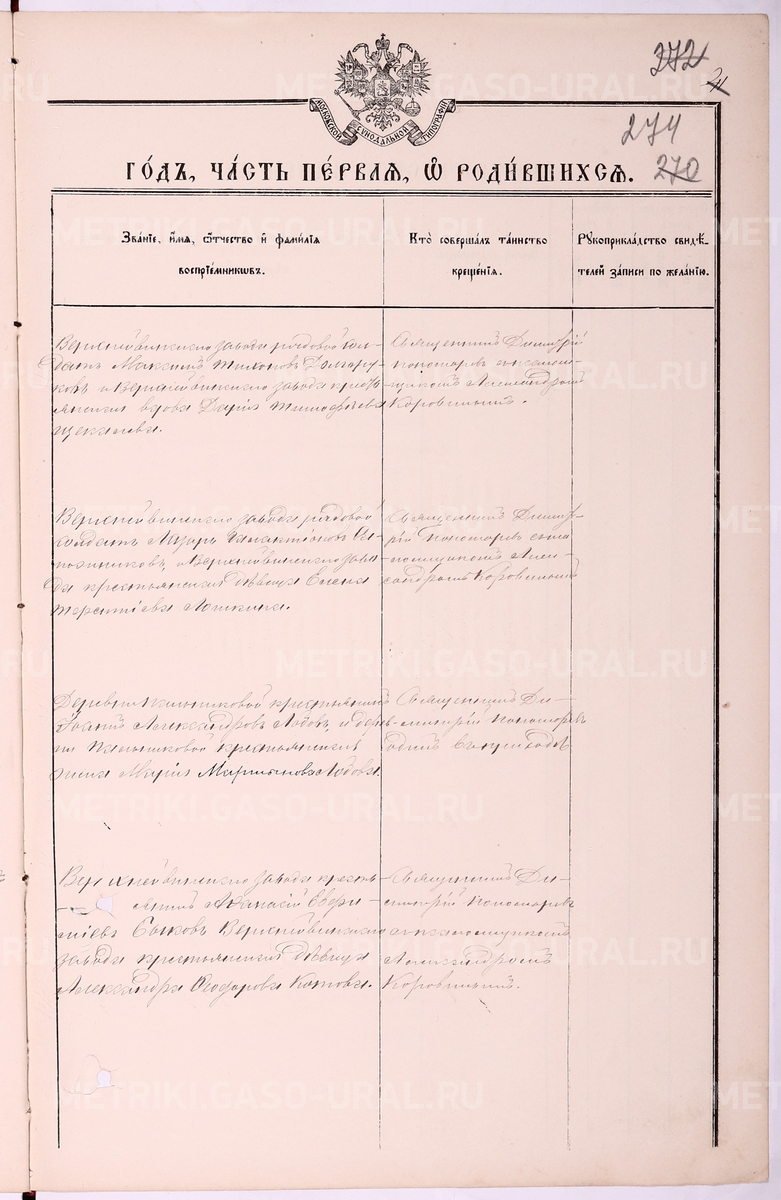 372
21
274
270
МОСКОВСКОЙ СѴНОДАЛЬНОЙ ТИПОГРАФІИ
ГО́ДЪ, ЧА́СТЬ ПЕ́РВАѦ, Ѽ РОДИ́ВШИХСѦ.
Зва́нїе, и҆́мѧ, ѻ҆́тчество и҆ фами́лїѧ
воспрїе́мникѡвъ.
Кто̀ соверша́лъ та́инство
креще́нїѧ.
Рꙋкоприкла́дство свидѣ́-
телей за́писи по жела́нїю.
Верхнейвинскаго завода рядовой сол-
датъ Максимъ Тихоновъ Долгору-
ковъ и Верхнейвинскаго завода крестья-
вдова Дарія Тимофѣева
Щекалева.
Священникъ Димитрій
Пономаревъ съ псалом-
щикомъ Александромъ
Коровинымъ.
Верхнейвинскаго завода рядовой
солдатъ Лазарь Галактіоновъ Са-
пожниковъ, и Верхнейвинскаго заво-
да крестьянская дѣвица Елена
Терентіева Лошкина.
Священникъ Димит-
рій Пономаревъ съ пса-
ломщикомъ Алек-
сандромъ Коровинымъ
Деревни Пальниковой крестьянинъ
Іоаннъ Александровъ Лобовъ, и дерев-
ни Пальниковой крестьянская
жена Марія Мартинова Лобова.
Священникъ Ди-
митрій Пономаревъ
Верхнейвинскаго завода кресть-
янинъ Аѳанасій Евфи-
міевъ Быковъ Верхнейвинскаго
завода крестьянская дѣвица
Александра Ѳеодорова Котова.
Священникъ Ди-
митрій Пономаревъ
съ псаломщикомъ
Александромъ
Коровинымъ.
METRIKI.GASO-URAL.RU